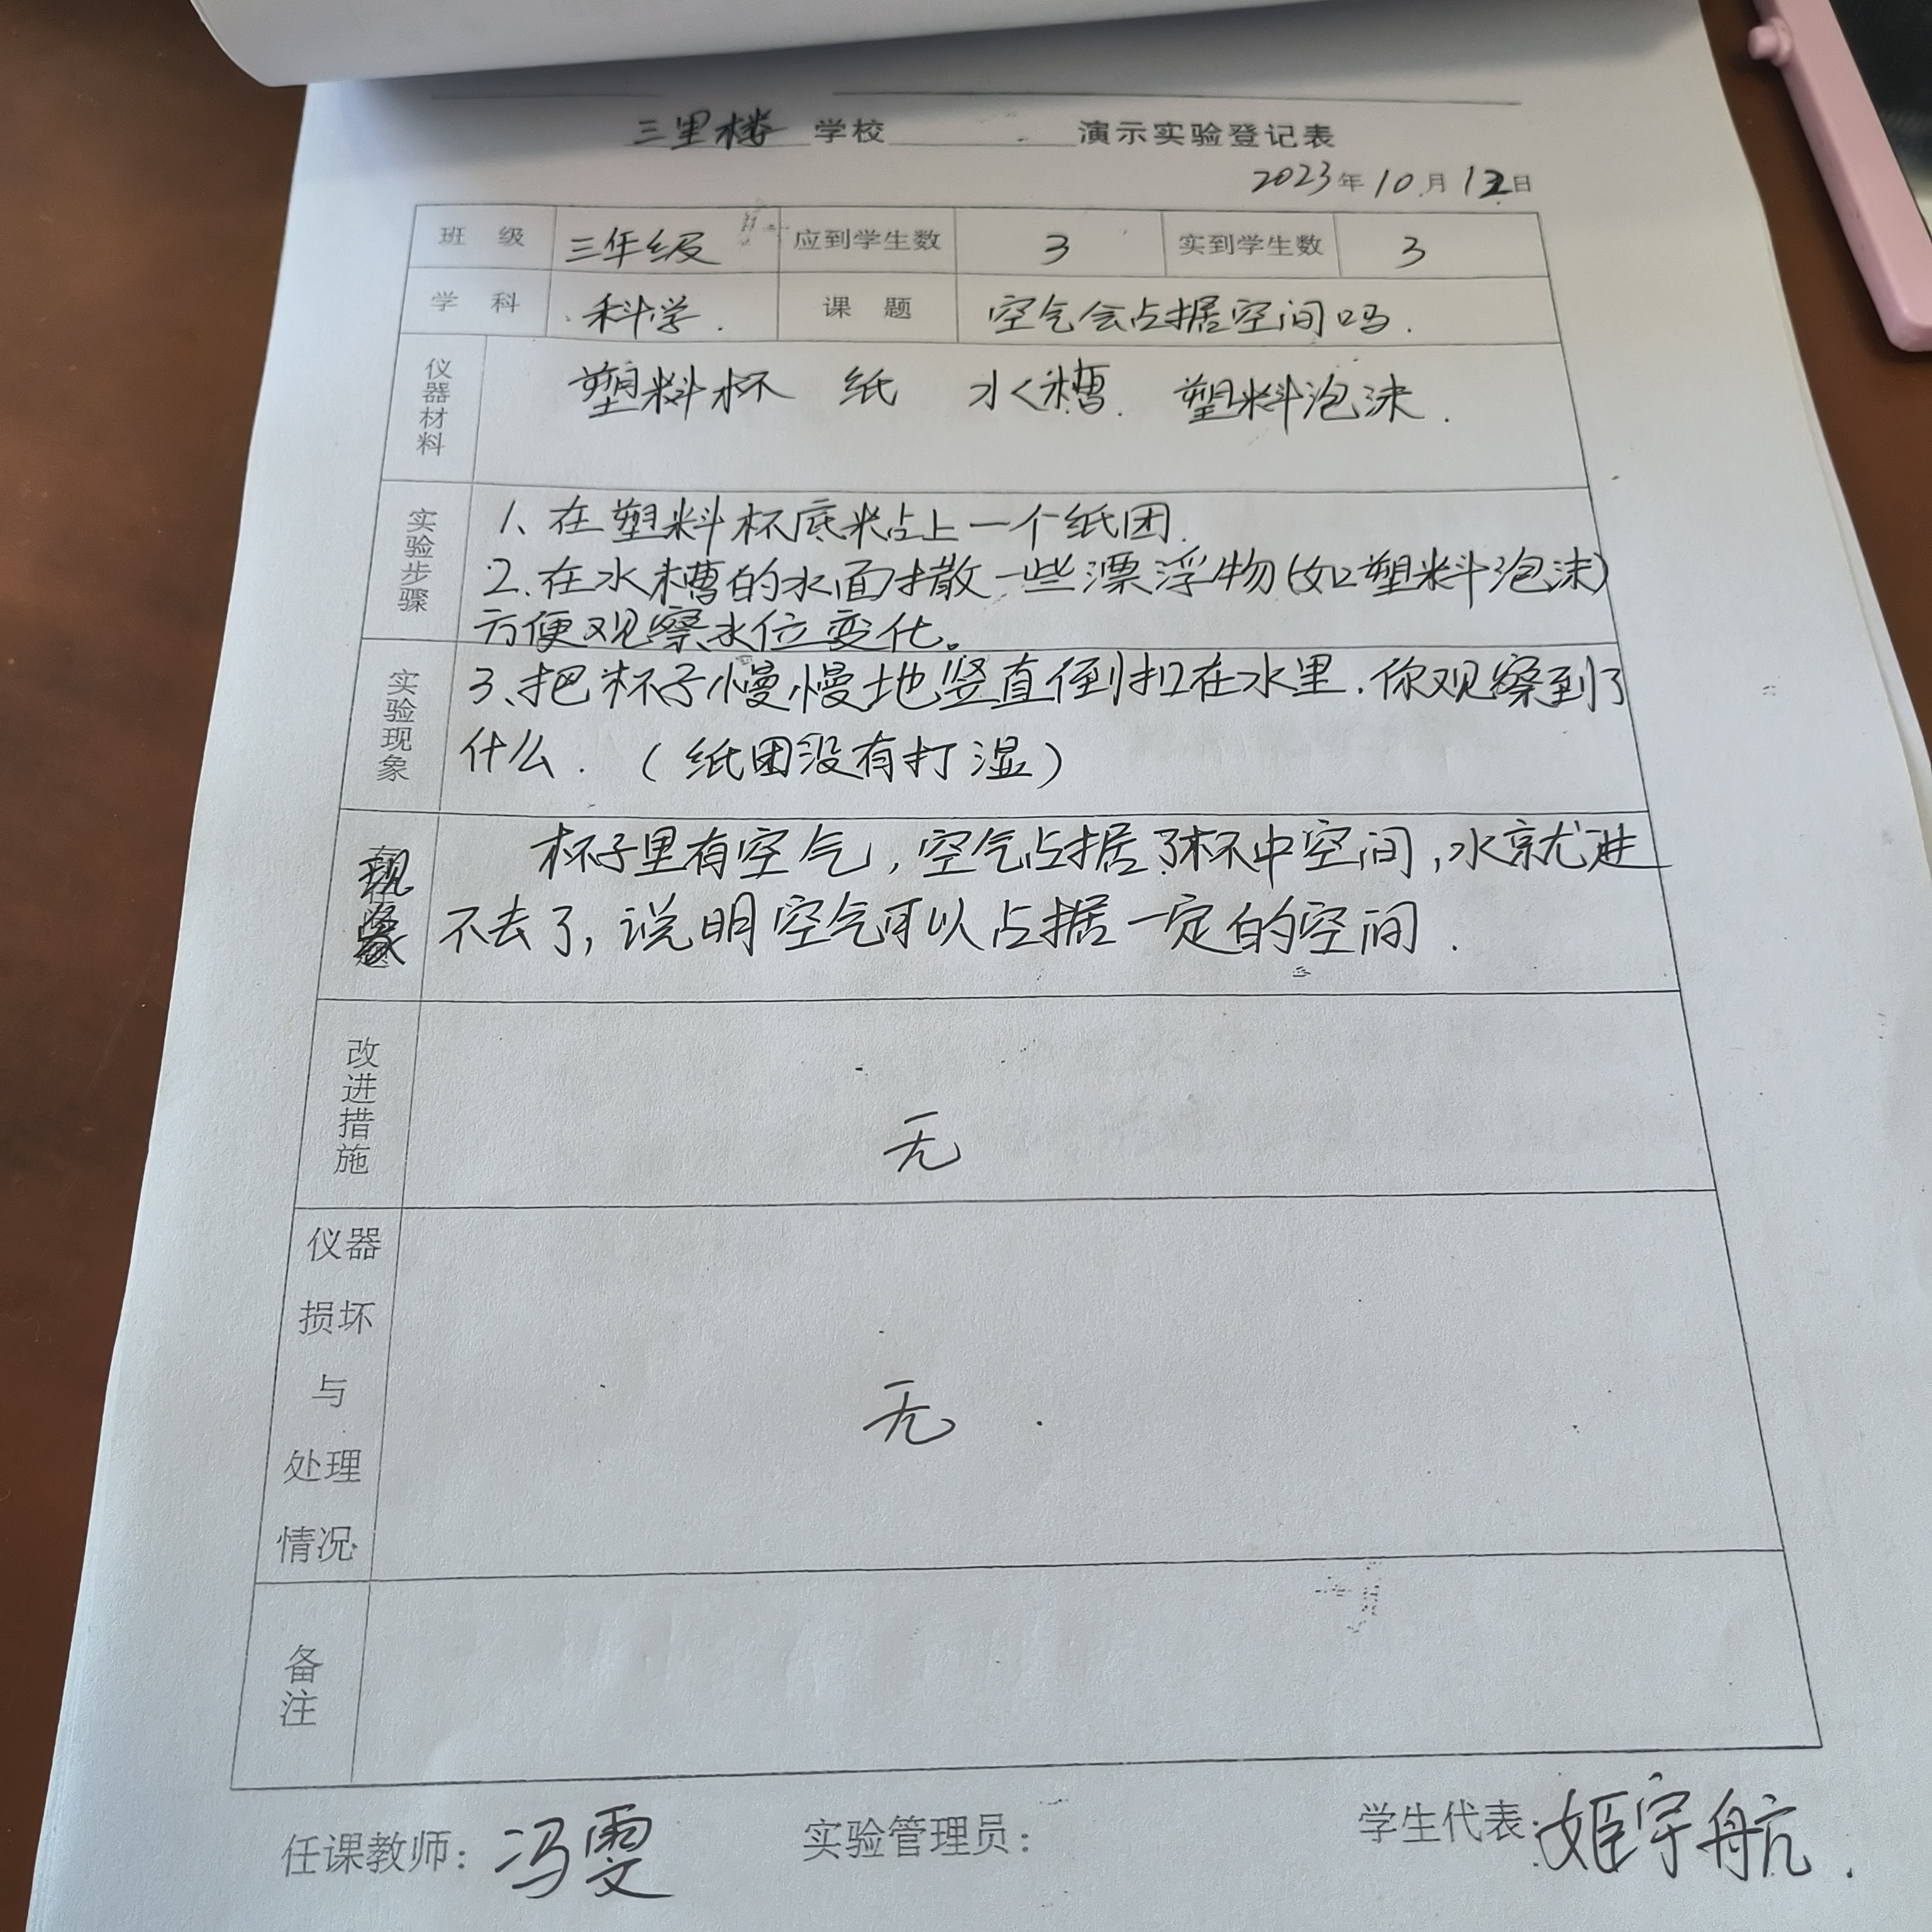 三里楼 学校 演示实验登记表
2023年10月12日
班 级 三年级 应到学生数 3 实到学生数 3
学 科 科学. 课 题 空气会占据空间吗.
仪器材料 塑料杯 纸 水槽. 塑料泡沫.
实验步骤
1、在塑料杯底粘上一个纸团.
2、在水槽的水面撒一些漂浮物(如塑料泡沫)
方便观察水位变化。
实验现象
3、把杯子慢慢地竖直倒扣在水里.你观察到了
什么.(纸团没有打湿)
现象
杯子里有空气,空气占据了杯中空间,水就进
不去了,说明空气可以占据一定的空间.
改进措施 无
仪器损坏与处理情况 无
备注
任课教师:冯雯 实验管理员: 学生代表:姬宇航.